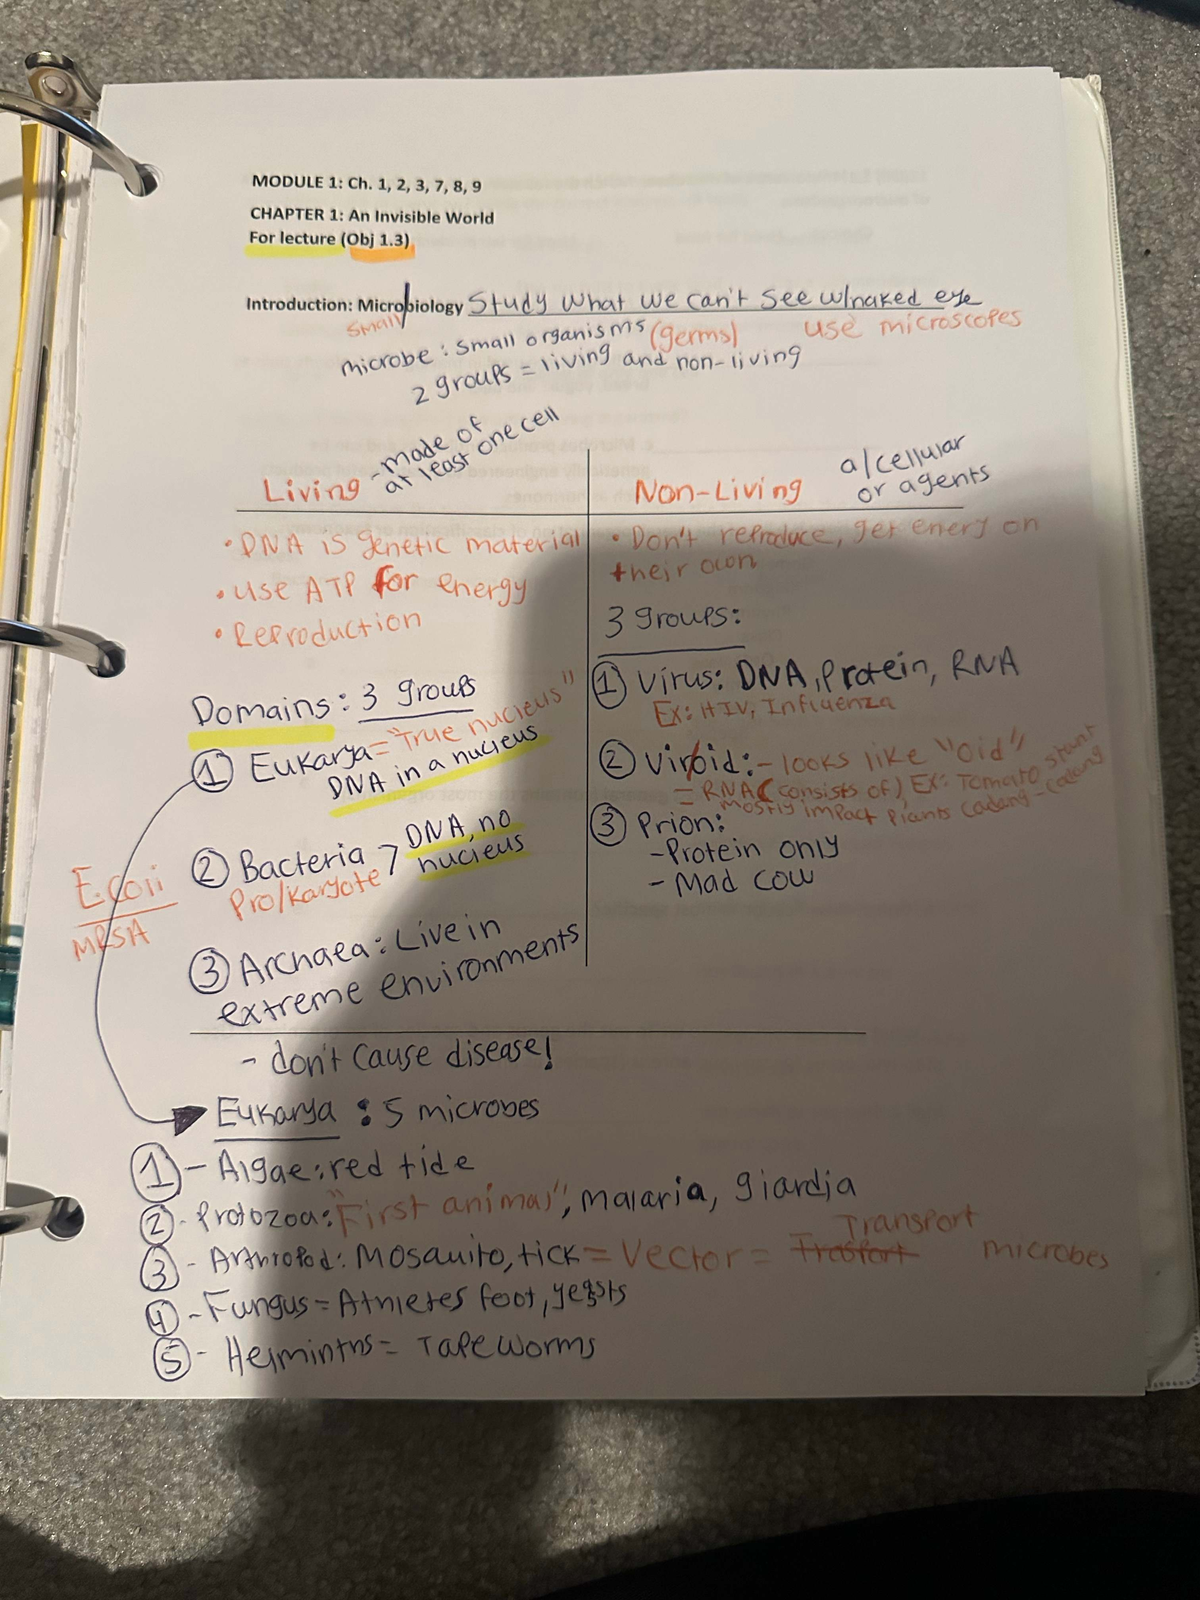 MODULE 1: Ch. 1, 2, 3, 7, 8, 9
CHAPTER 1: An Invisible World
For lecture (Obj 1.3)
Introduction: Micro/biology Study what we can't see w/naked eye
small
use microscopes
microbe: small organisms (germs)
2 groups = living and non-living
Living - made of at least one cell
• DNA is genetic material
• use ATP for energy
• Reproduction
Domains: 3 groups
① Eukarya = "True nucleus"
DNA in a nucleus
② Bacteria > DNA, no nucleus
Pro/Karyote
E.coli
MRSA
③ Archaea: Live in
extreme environments
- don't cause disease!
Non-Living a/cellular
or agents
• Don't reproduce, get enery on
their own
3 groups:
① Virus: DNA, Protein, RNA
Ex: HIV, Influenza
② Vir/oid: - looks like "oid"
= RNA (consists of) Ex: Tomato stunt
mostly impact plants cadang-cadang
③ Prion:
- Protein only
- Mad cow
Eukarya : 5 microbes
① - Algae: red tide
② - Protozoa: "First animal", malaria, giardia
③ - Arthropod: Mosquito, tick = Vector = Trasport Transport microbes
④ - Fungus = Athletes foot, yeasts
⑤ - Helminths = Tapeworms